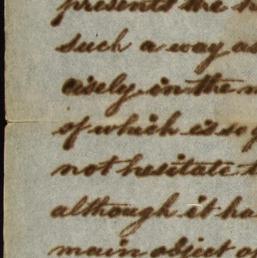 presents the
such a way as
cisely in the
of which is so
not hesitate
although it ha
main object of